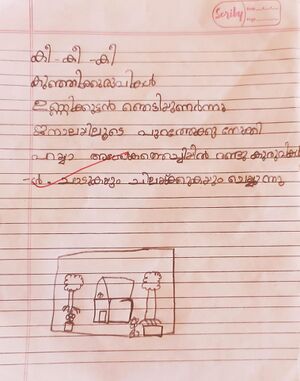 Scriby
കീ - കീ - കീ
കുഞ്ഞിക്കുരുവികൾ
ഉണ്ണിക്കുടൻ ഞെട്ടിയുണർന്നു
ജനാലയിലൂടെ പുറത്തേക്കു നോക്കി
രണ്ടു കുരുവികൾ
പാടുകയും ചിലക്കുകയും ചെയ്യുന്നു